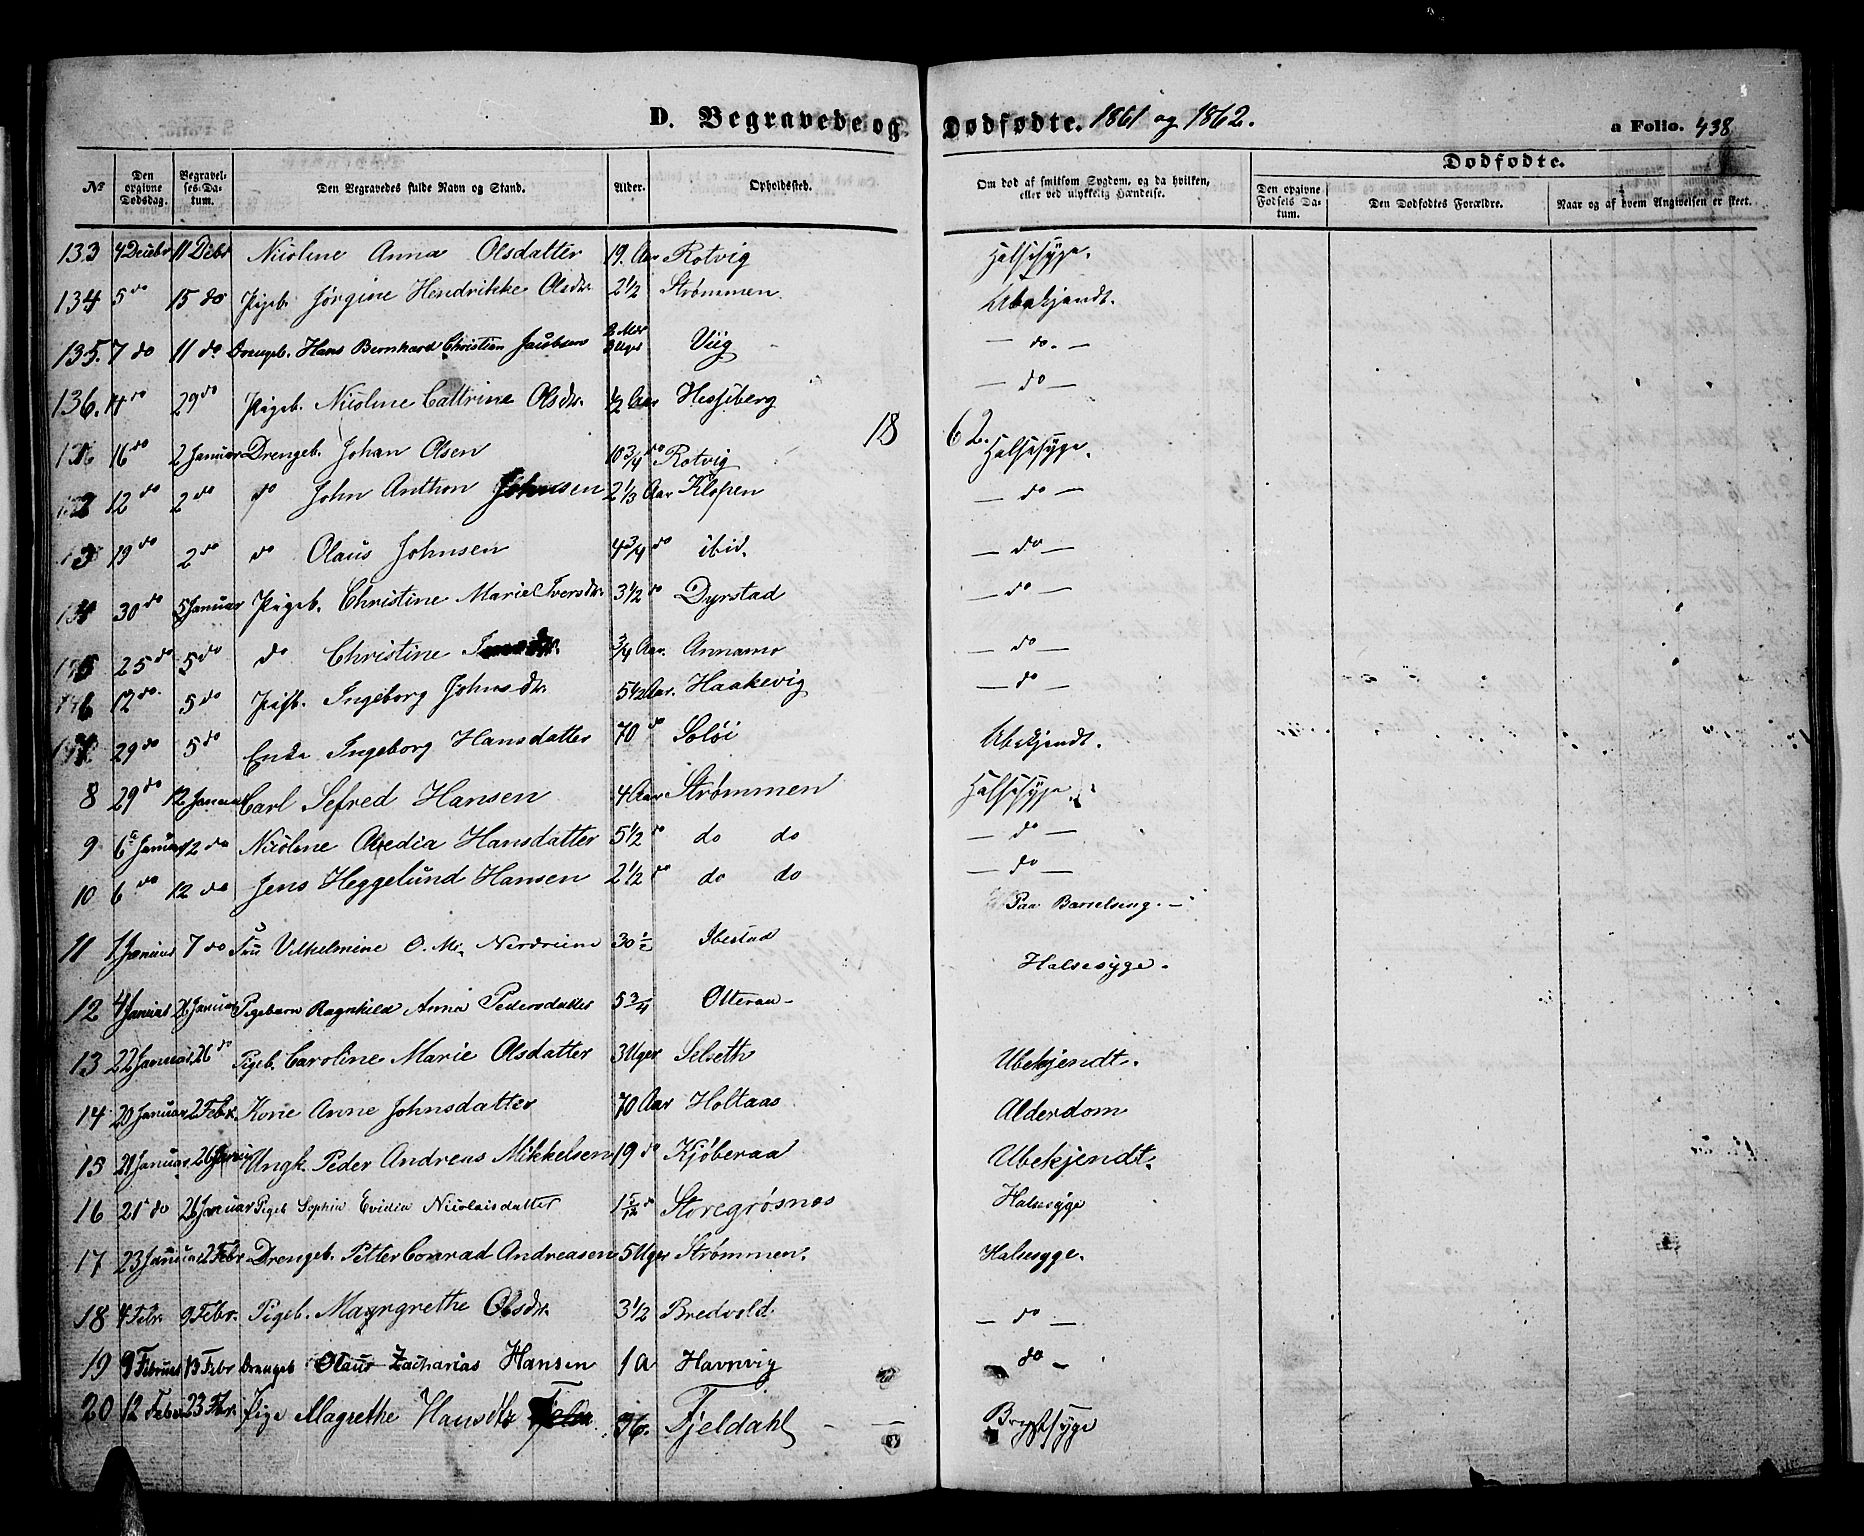 D. Begravede og Dødfødte. 1861 og 1862. a Folio. 438
Dødfødte.
№ Den opgivne Dødsdag. Begravelses-Datum. Den Begravedes fulde Navn og Stand. Alder. Opholdssted. Om død af smitsom Sygdom, og da hvilken, eller ved ulykkelig Hændelse. Den opgivne Fødsels Datum. Den Dødfødtes Forældre. Naar og af hvem Angivelsen er skeet.
133 4 Decebr 11 Debr Nicoline Anna Olsdatter 19. Aar Rotvig Halssyge.
134 5 do 15 do Pigeb. Jørgine Hendrikke Olsdr. 2 1/2 Strømmen. Ubekjendt.
135. 7 do 11 do Drengeb. Hans Bernhard Christian Jacobsen 3 Uger Viig — do. —
136. 14 do 29 do Pigeb. Nicoline Cattrine Olsdr. 1/2 Aar Hessberg — do —
1862.
16 do 2 Januar Drengeb. Johan Olsen 10 3/4 do Rotvig Halssyge.
2 12 do 2 do do John Anthon Johnsen 2 1/3 Aar Kløpen — do —
3 19 do 2 do do Olaus Johnsen 4 3/4 do ibid. — do —
4 30 do 5 Januar Pigeb. Christine Marie Iversdr. 3 1/2 do Dyrstad — do —
5 25 do 5 do do Christine 3/4 Aar. Annamo — do —
6 12 do. 5 do Pigb. Ingeborg Johnsdr. 5 1/2 Aar. Haakevig — do —
29 do 5 do Enke Ingeborg Hansdatter 70 do Soløi Ubekjendt.
8 29 do 12 Januar Carl Sefred Hansen 4 Aar Strømmen Halssyge
9 6 Januar 12 do Nicoline Hansdatter 5 1/2 do do do — do —
10 6 do 12 do Jens Heggelund Hansen 2 1/2 do do do — do —
11 1 Januar 7 do Fru Vilhelmine O. M. Nordrum 30 1/2 Ibestad Paa Barselseng. —
12 4 Januar Januar Pigebarn Ragnhild Anna Pedersdatter 5 3/4 Otteraa — Halsesyge.
13 22 Januar 26 do Pigeb. Caroline Marie Olsdatter 3 Uger Selseth Ubekjendt.
14 20 Januar 2 Febr. Kone Anne Johnsdatter 70 Aar Holtaas Alderdom
15 21 Januar 26 Januar Ungk. Peder Andreas Mikkelsen 19 do Kjøberaa Ubekjendt.
16 21 do 26 Januar Pigeb Sophia Evidia Nicolaisdatter 1 5/12 do Storegrøsnes Halsesyge
17 23 Januar 2 Febr Drengeb. Petter Conrad Andreasen 5 Uger Strømmen. Halsesyge.
18 4 Febr. 9 Febr. Pigeb. Margrethe Olsdr. 3 1/2 Bredvold. — do —
19 9 Februar 13 Febr Drengeb Olaus Zacharias Hansen 1 a Havnvig — do —
20 12 Febr 23 Febr. Pige Magrethe Hansdtr 36. Fjeldahl — — Brystsyge